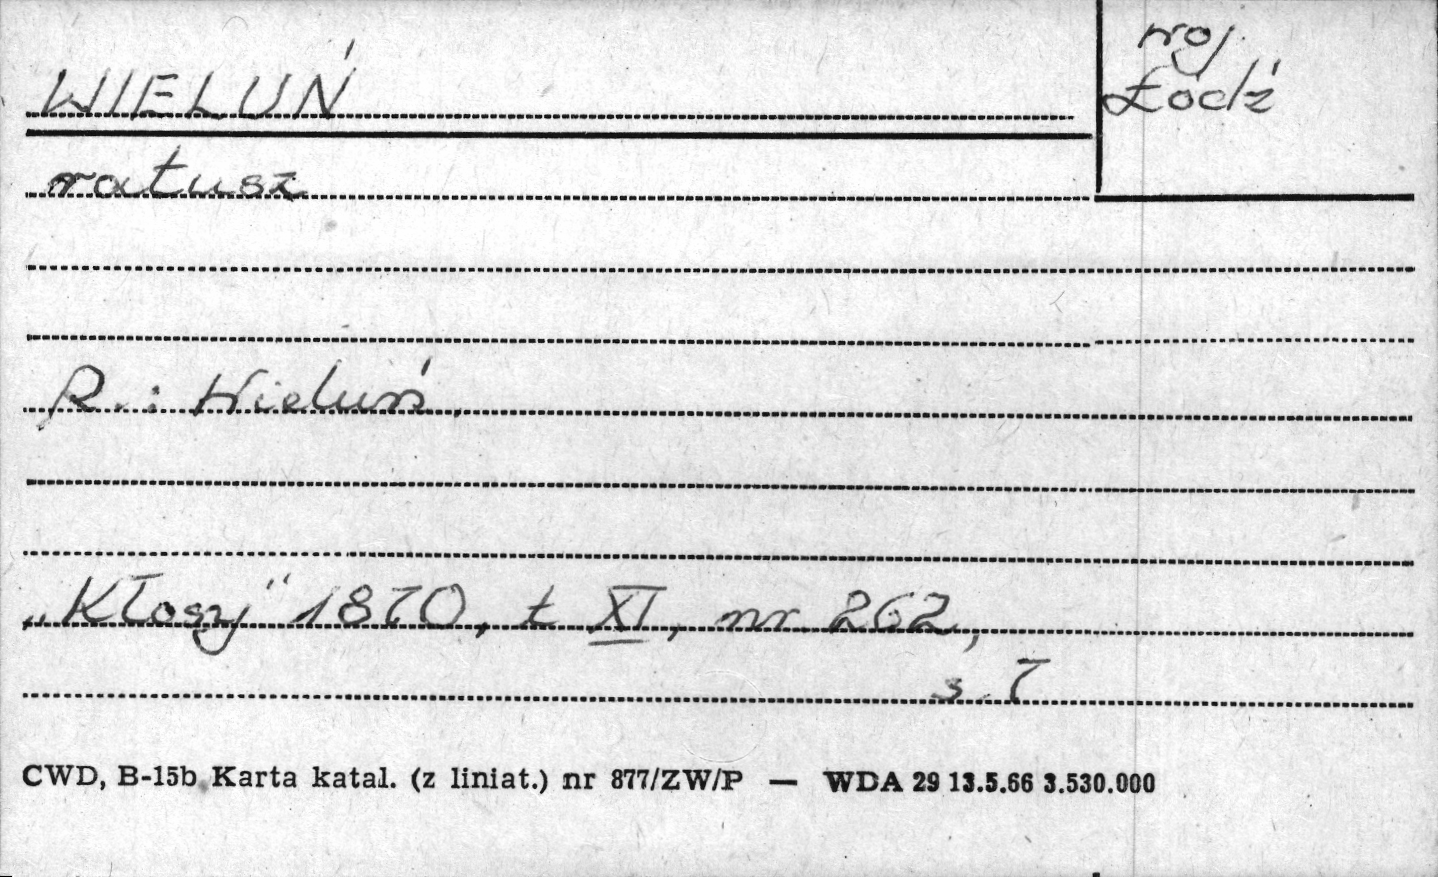 WIELUŃ
woj
Łódź
ratusz
R.: Wieluń.
„Kłosy" 1870, t XI, nr 262,
s. 7
CWD, B-15b Karta katal. (z liniat.) nr 877/ZW/P — WDA 29 13.5.66 3.530.000